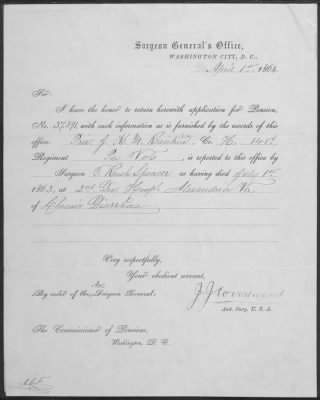 Surgeon General's Office,
WASHINGTON CITY, D. C.,
April 1st 1864.
Sir:
I have the honor to return herewith application for Pension,
No. 37,891, with such information as is furnished by the records of this
office. Priv of K. M. Co. H. 148th
Regiment Pa Vols, is reported to this office by
Surgeon G. Rush Spencer as having died July 1st
1863, at 2nd Div Hosp Alexandria Va
of Chronic Diarrhoea
Very respectfully,
Your obedient servant,
By order of the Surgeon General:
J J Woodward
Ass. Surg. U. S. A.
The Commissioner of Pensions,
Washington, D. C.